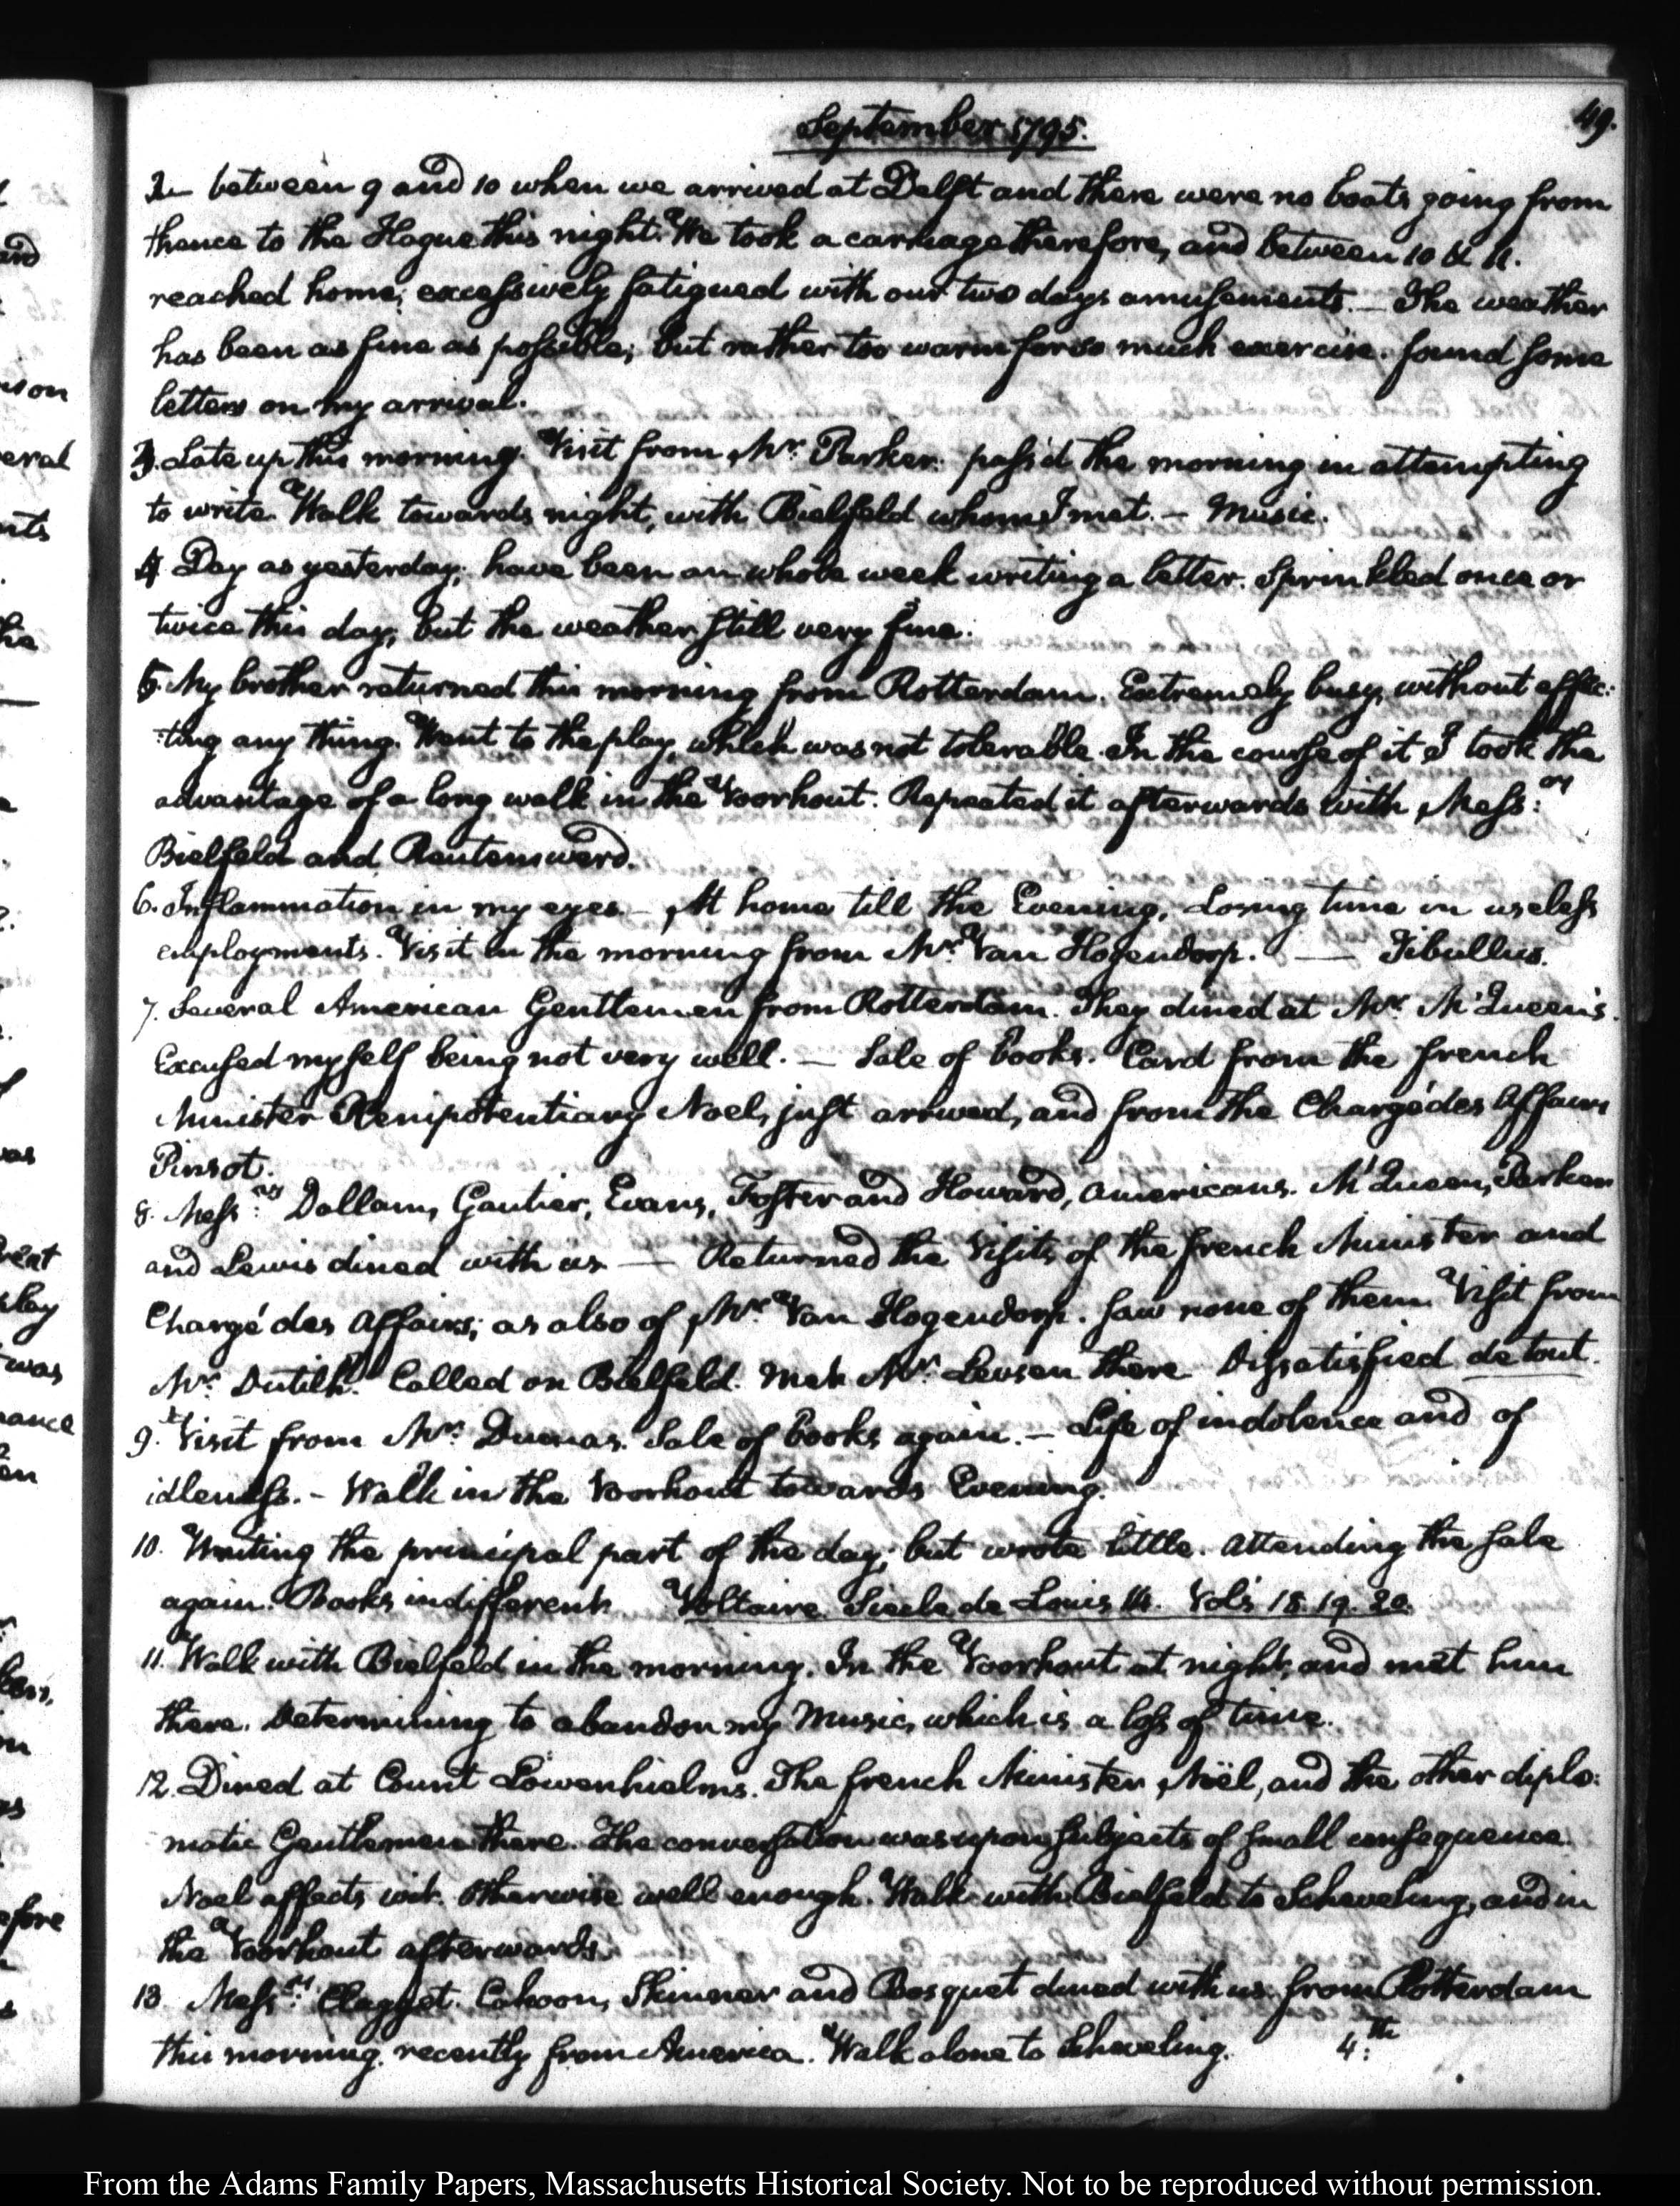 September 1795.
49.
2 between 9 and 10 when we arrived at Delft and there were no boats going from
thence to the Hague this night. We took a carriage therefore, and between 10 & 11.
reached home; excessively fatigued with our two days amusements. — The weather
has been as fine as possible; but rather too warm for so much exercise. found some
letters on my arrival.
3. Late up this morning. Visit from Mr. Parker. pass'd the morning in attempting
to write. Walk towards night, with Bielfeld whom I met. — Music.
4 Day as yesterday; have been an whole week writing a letter. Sprinkled once or
twice this day, but the weather still very fine.
5. My brother returned this morning from Rotterdam. Extremely busy, without effec:
:ting any thing. Went to the play, which was not tolerable. In the course of it I took the
advantage of a long walk in the Voorhout. Repeated it afterwards with Mess:rs
Bielfeld and Reutersward.
6. Inflammation in my eyes. — At home till the Evening, Losing time in useless
employments. Visit in the morning from Mr. Van Hogendorp. — Tibullus.
7. Several American Gentlemen from Rotterdam. They dined at Mr. McQueen's.
Excused myself being not very well. — Sale of books. Card from the french
Minister Plenipotentiary Noel, just arrived, and from the Chargé des Affairs
Pinsot.
8. Mess:rs Dallam, Gautier, Evans, Foster and Howard, Americans. McQueen, Parker
and Lewis dined with us — Returned the Visits of the french Minister and
Chargé des Affairs; as also of Mr. Van Hogendorp. Saw none of them. Visit from
Mr. Dutilh. Called on Bielfeld. Met Mr. Levsen there. Dissatisfied de tout.
9. Visit from Mr. Dumas. Sale of books again. — Life of indolence and of
idleness. — Walk in the Voorhout towards Evening.
10. Writing the principal part of the day; but wrote little. Attending the sale
again. Books indifferent. Voltaire Siecle de Louis 14. Vols 18. 19. 20.
11. Walk with Bielfeld in the morning. In the Voorhout at night, and met him
there. Determining to abandon my Music, which is a loss of time.
12. Dined at Count Löwenhielms. The french Minister, Noël, and the other diplo:
matic Gentlemen there. The conversation was upon subjects of small consequence.
Noel affects wit. Otherwise well enough. Walk with Bielfeld to Scheveling, and in
the Voorhout afterwards.
13 Mess:rs Clagget. Cahoon, Skinner and Bosquet dined with us. from Rotterdam
this morning. recently from America. Walk alone to Scheveling. 4:th
From the Adams Family Papers, Massachusetts Historical Society. Not to be reproduced without permission.